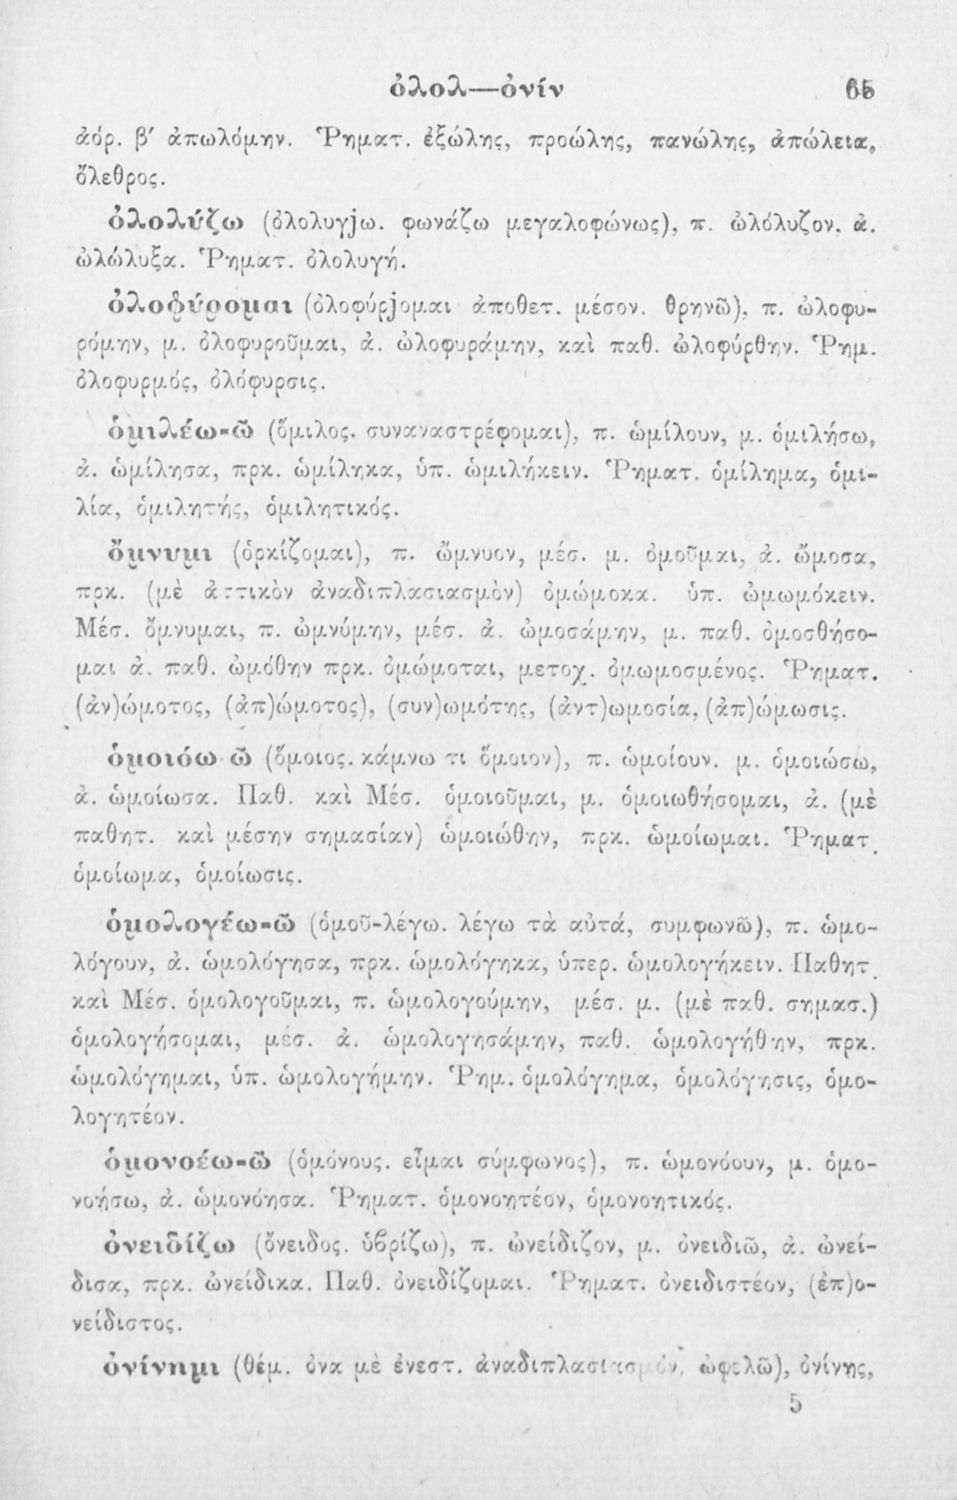 ὀλολ—ὀνίν 65
ἀόρ. β′ ἀπωλόμην. Ῥηματ. ἐξώλης, προώλης, πανώλης, ἀπώλεια,
ὄλεθρος.
ὀλολύζω (ὀλολυγjω. φωνάζω μεγαλοφώνως), π. ὠλόλυζον, ἀ.
ὠλώλυξα. Ῥηματ. ὀλολυγή.
ὀλοφύρομαι (ὀλοφύρjομαι ἀποθετ. μέσον. θρηνῶ), π. ὠλοφυ-
ρόμην, μ. ὀλοφυροῦμαι, ἀ. ὠλοφυράμην, καὶ παθ. ὠλοφύρθην. Ῥημ.
ὀλοφυρμός, ὀλόφυρσις.
ὁμιλέω-ῶ (ὅμιλος. συναναστρέφομαι), π. ὡμίλουν, μ. ὁμιλήσω,
ἀ. ὡμίλησα, πρκ. ὡμίληκα, ὑπ. ὡμιλήκειν. Ῥηματ. ὁμίλημα, ὁμι-
λία, ὁμιλητής, ὁμιλητικός.
ὄμνυμι (ὁρκίζομαι), π. ὤμνυον, μέσ. μ. ὀμοῦμαι, ἀ. ὤμοσα,
πρκ. (μὲ ἀττικὸν ἀναδιπλασιασμὸν) ὀμώμοκα. ὑπ. ὠμωμόκειν.
Μέσ. ὄμνυμαι, π. ὠμνύμην, μέσ. ἀ. ὠμοσάμην, μ. παθ. ὀμοσθήσο-
μαι ἀ. παθ. ὠμόθην πρκ. ὀμώμοται, μετοχ. ὀμωμοσμένος. Ῥηματ.
(ἀν)ώμοτος, (ἀπ)ώμοτος), (συν)ωμότης, (ἀντ)ωμοσία, (ἀπ)ώμωσις.
ὁμοιόω ῶ (ὅμοιος. κάμνω τι ὅμοιον), π. ὡμοίουν. μ. ὁμοιώσω,
ἀ. ὡμοίωσα. Παθ. καὶ Μέσ. ὁμοιοῦμαι, μ. ὁμοιωθήσομαι, ἀ. (μὲ
παθητ. καὶ μέσην σημασίαν) ὡμοιώθην, πρκ. ὡμοίωμαι. Ῥηματ.
ὁμοίωμα, ὁμοίωσις.
ὁμολογέω-ῶ (ὁμοῦ-λέγω. λέγω τὰ αὐτά, συμφωνῶ), π. ὡμο-
λόγουν, ἀ. ὡμολόγησα, πρκ. ὡμολόγηκα, ὑπερ. ὡμολογήκειν. Παθητ.
καὶ Μέσ. ὁμολογοῦμαι, π. ὡμολογούμην, μέσ. μ. (μὲ παθ. σημασ.)
ὁμολογήσομαι, μέσ. ἀ. ὡμολογησάμην, παθ. ὡμολογήθην, πρκ.
ὡμολόγημαι, ὑπ. ὡμολογήμην. Ῥημ. ὁμολόγημα, ὁμολόγησις, ὁμο-
λογητέον.
ὁμονοέω-ῶ (ὁμόνους. εἶμαι σύμφωνος), π. ὡμονόουν, μ. ὁμο-
νοήσω, ἀ. ὡμονόησα. Ῥηματ. ὁμονοητέον, ὁμονοητικός.
ὀνειδίζω (ὄνειδος. ὑβρίζω), π. ὠνείδιζον, μ. ὀνειδιῶ, ἀ. ὠνεί-
δισα, πρκ. ὠνείδικα. Παθ. ὀνειδίζομαι. Ῥηματ. ὀνειδιστέον, (ἐπ)ο-
νείδιστος.
ὀνίνημι (θέμ. ὀνα μὲ ἐνεστ. ἀναδιπλασιασμόν, ὠφελῶ), ὀνίνης,
5